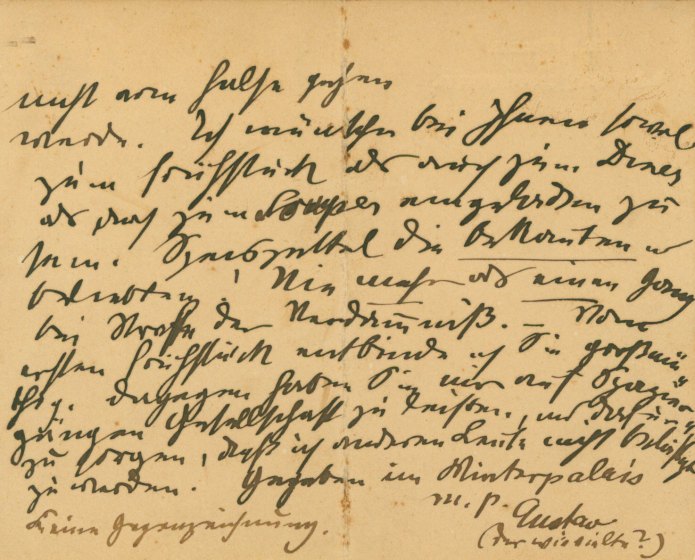 nicht vom Halse gehen
werde. Ich wünsche bei Ihnen sowol
zum Frühstück als auch zum Diner
als auch zum Souper eingeladen zu
sein. Speiszettel die bekannten u
beliebten! Nie mehr als einen Gang
bei Strafe der Verdammniß. – Vom
ersten Frühstück entbinde ich Sie großmü
thig. Dagegen haben Sie mir auf Spazier
gängen Gesellschaft zu leisten, und dafür
zu sorgen, daß ich anderen Leute nicht belästigt
zu werden. Gegeben im Winterpalais
m. p. Gustav
Keine Gegenzeichnung. (der wievielte?)